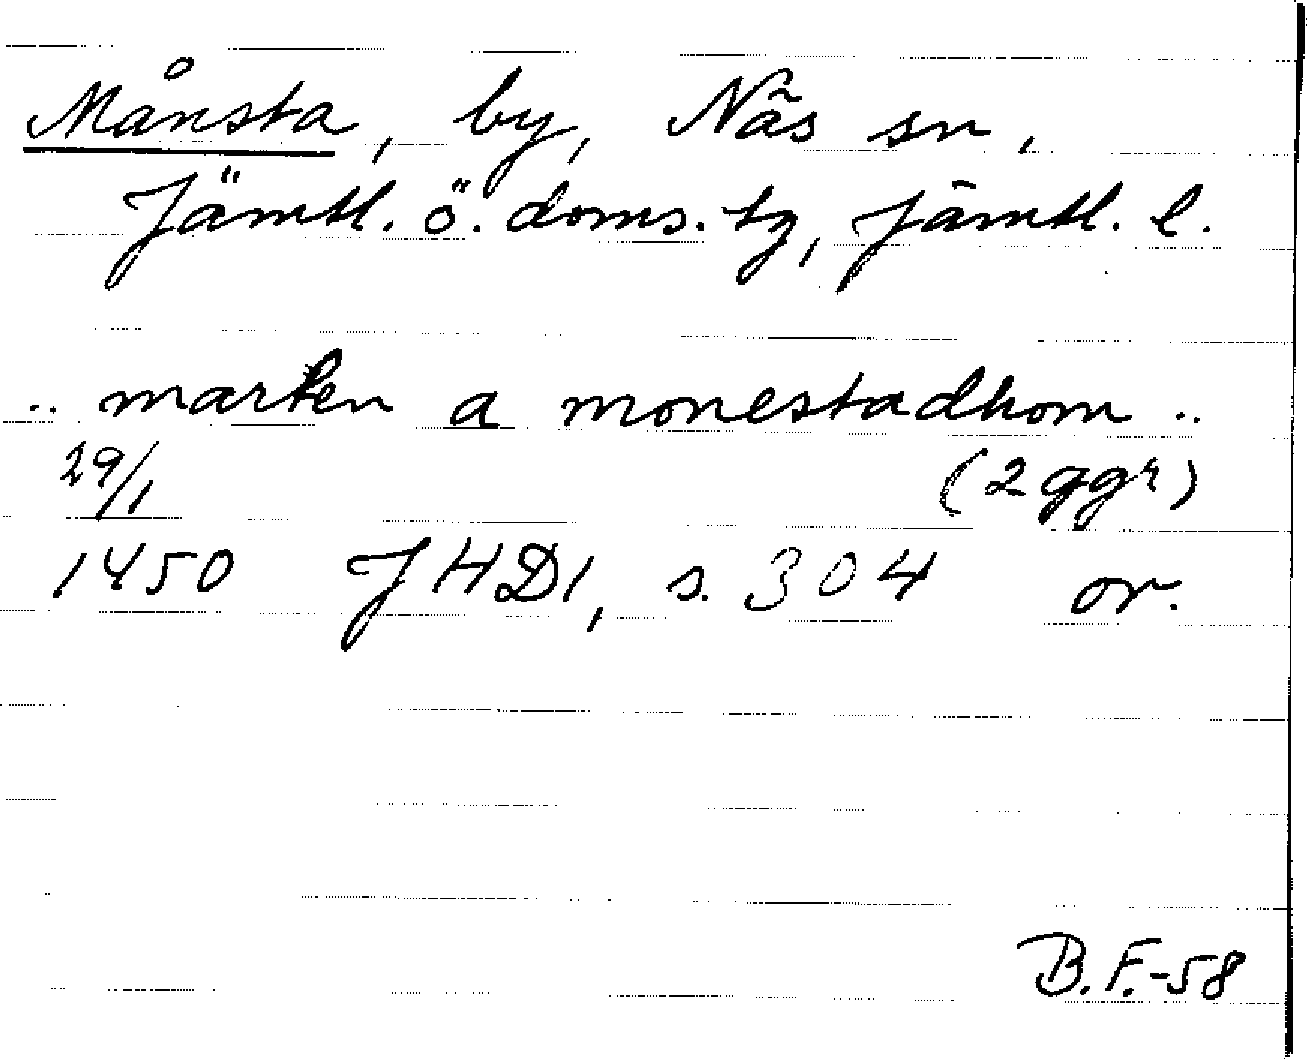 Månsta, by, Näs sn,
Jämtl. ö. doms. tg, Jämtl. l.
.. marten a monestadhom ..
29/1 (2 ggr)
1450 JHD1, s. 304 or.
B.F.-58